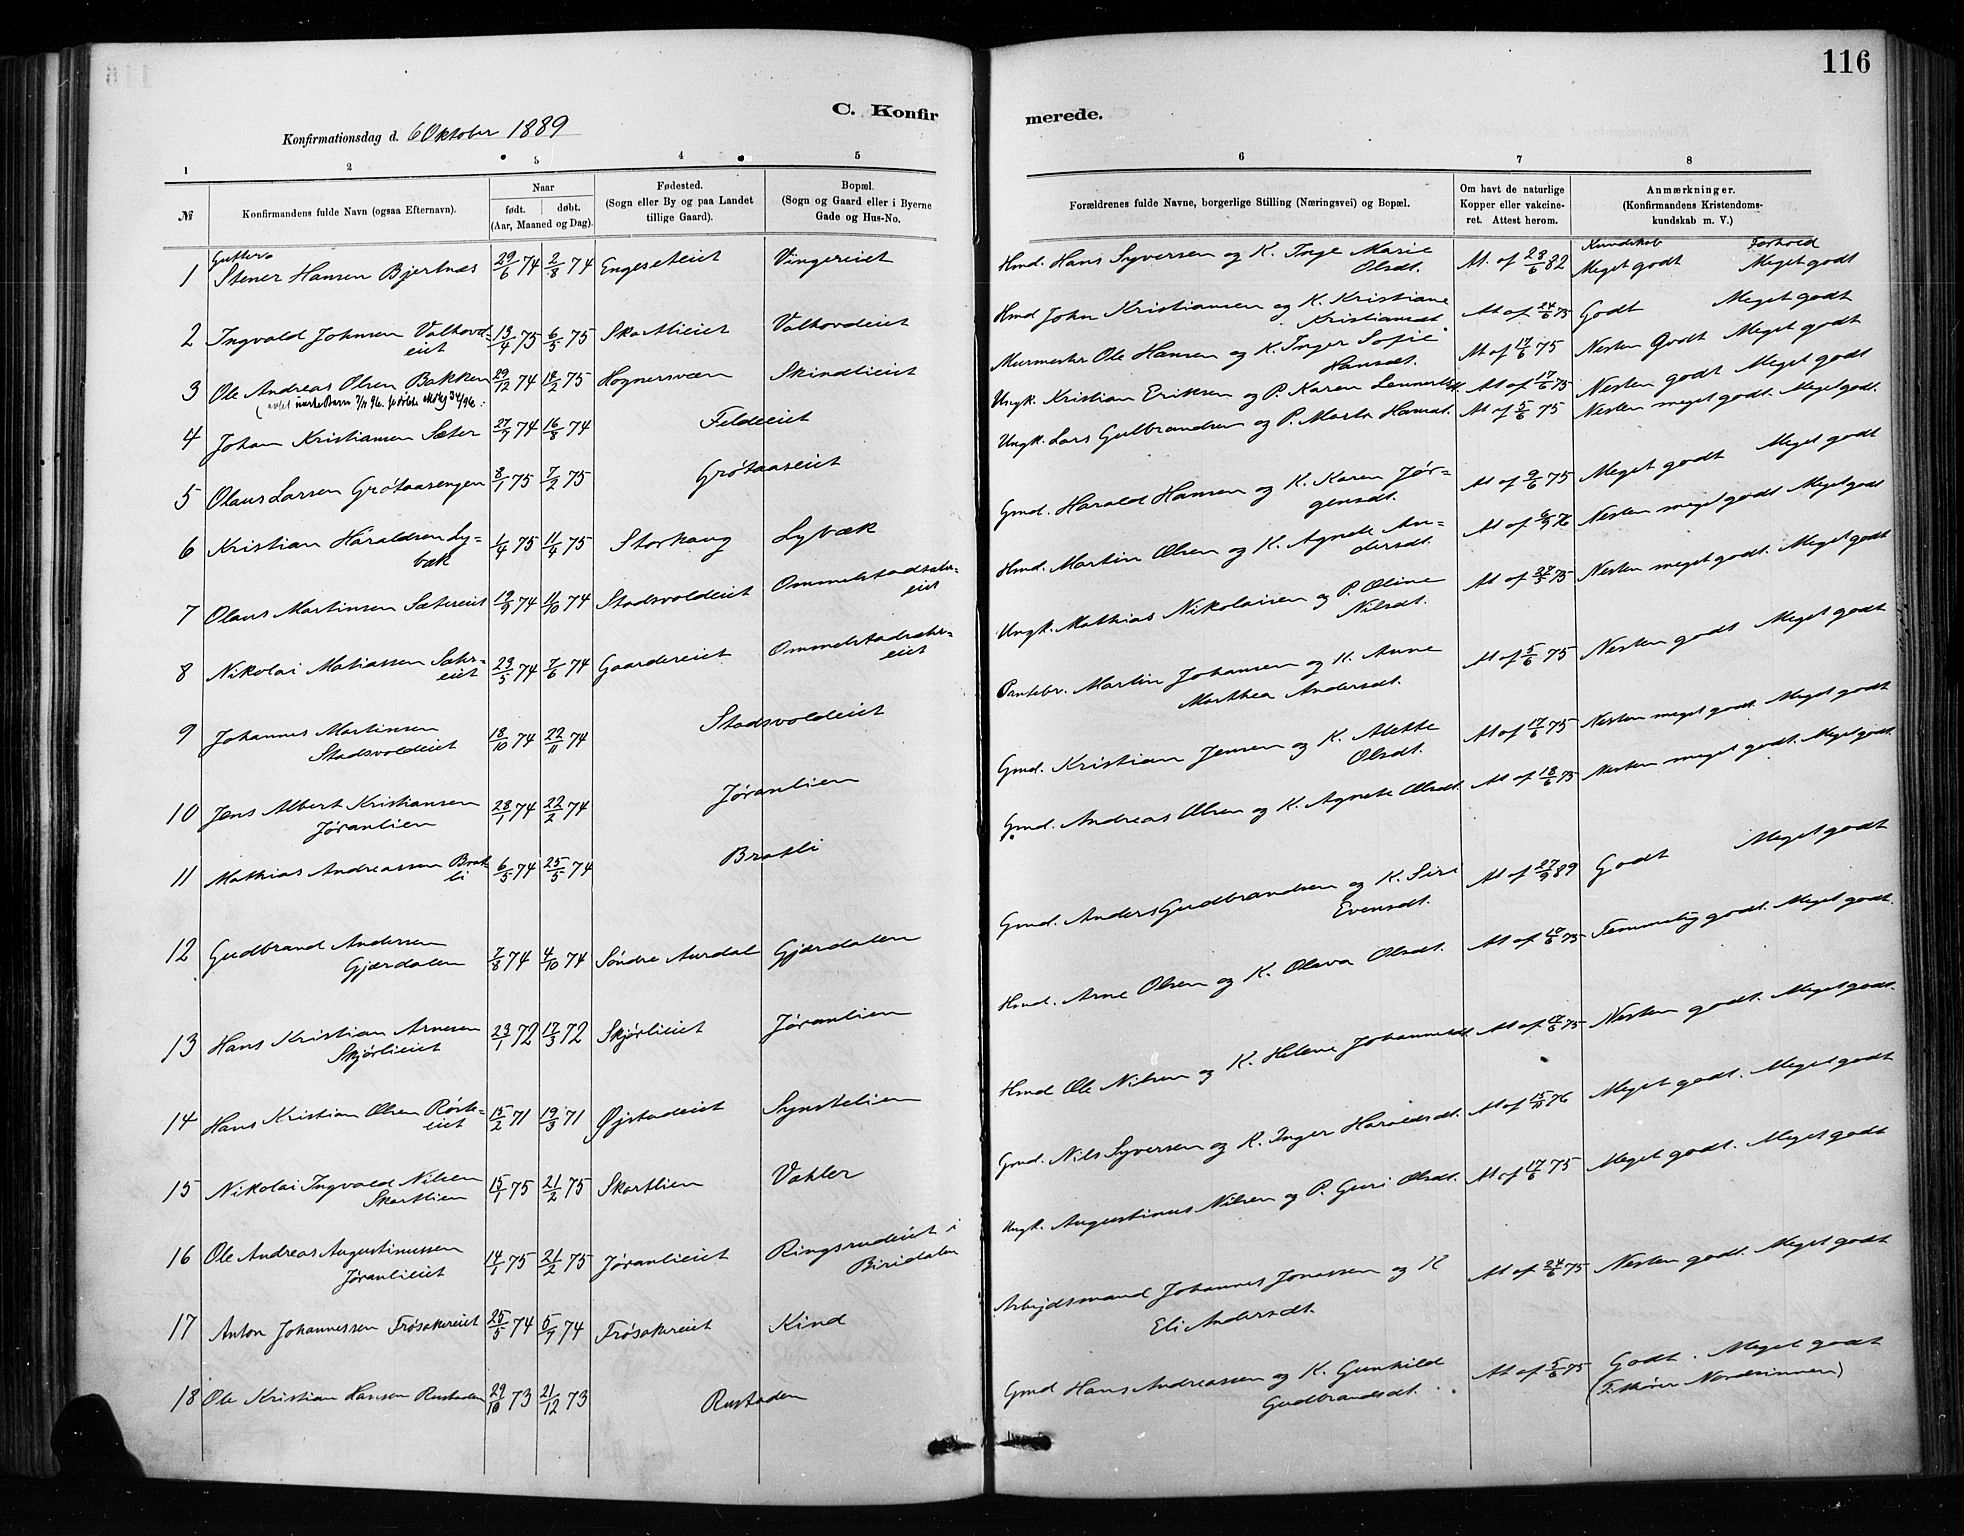 116
C. Konfir
merede.
Konfirmationsdag d. 6 Oktober 1889
1 2 3 4 5 6 7 8
№
Konfirmandens fulde Navn (ogsaa Efternavn).
Naar
født. døbt.
(Aar, Maaned og Dag).
Fødested.
(Sogn eller By og paa Landet
tillige Gaard).
Bopæl.
(Sogn og Gaard eller i Byerne
Gade og Hus-No.
Forældrenes fulde Navne, borgerlige Stilling (Næringsvei) og Bopæl.
Om havt de naturlige
Kopper eller vakcine-
ret. Attest herom.
Anmærkninger.
(Konfirmandens Kristendoms-
kundskab m. V.)
Gutter
Kundskab Forhold
1 Stener Hansen Bjertnæs 29/6 74 2/8 74 Engeseteiet Vingereiet Hmd. Hans Syversen og K. Inge Marie
Olsdt. At. af 23/6 82 Meget godt Meget godt
2 Ingvald Johnsen Valhovd-
eiet 13/4 75 6/5 75 Skartlieiet Valhovdeiet Hmd John Kristiansen og K. Kristiane
Kristiansdt. At af 24/6 75 Godt Meget godt
3 Ole Andreas Olsen Bakken 29/12 74 14/2 75 Hognersvæen Skindlieiet Murmester Ole Hansen og K. Inger Sofie
Hansdt. At af 17/6 75 Nesten Godt Meget godt
4 Johan Kristiansen Sæter 27/7 74 16/8 74 Feldeeiet Ungk. Kristian Eriksen og P. Karen Lennertsdt At af 17/6 75 Nesten godt Meget godt
5 Olaus Larsen Grøtaasengen 8/1 75 7/2 75 Grøtaaseiet Ungk. Lars Gulbrandsen og P. Marta Hansdt. At af 5/6 75 Nesten meget godt. Meget godt.
6 Kristian Haraldsen Ly-
bæk 1/4 75 11/4 75 Storhaug Lybæk Gmd. Harald Hansen og K. Karen Jør-
gensdt. At af 9/6 75 Meget godt Meget godt
7 Olaus Martinsen Sætereiet 19/9 74 11/10 74 Stadsvoldeiet Ommelstadsæter-
eiet Hmd. Martin Olsen og K. Agnete An-
dersdt. At af 6/9 76 Nesten meget godt Meget godt
8 Nikolai Matiassen Sæter-
eiet 23/5 74 7/6 74 Gaardereiet Ommelstadsæter-
eiet Ungk. Mathias Nikolaisen og P. Oline
Nilsdt. At af 27/5 75 Nesten meget godt. Meget godt
9 Johannes Martinsen
Stadsvoldeiet 18/10 74 22/11 74 Stadsvoldeiet Pantebr. Martin Johansen og K. Anne
Marthea Andersdt. At af 5/6 75 Nesten godt Meget godt
10 Jens Albert Kristiansen
Jøranlien 28/1 74 22/2 74 Jøranlien Gmd. Kristian Jensen og K. Alette
Olsdt. At af 17/6 75 Nesten meget godt Meget godt
11 Mathias Andreassen Brat-
li 6/5 74 25/5 74 Bratli Gmd. Andreas Olsen og K. Agnete Olsdt. At af 18/6 75 Nesten meget godt. Meget godt.
12 Gudbrand Andersen
Gjærdalen 7/8 74 4/10 74 Søndre Aurdal Gjærdalen Gmd. Anders Gudbrandsen og K. Siri
Evensdt. At af 27/9 89 Godt Meget godt
13 Hans Kristian Arnesen
Skjørlieiet 23/1 72 17/3 72 Skjørlieiet Jøranlien Hmd. Arne Olsen og K. Olava Olsdt. At af 17/6 75 Temmelig godt. Meget godt.
14 Hans Kristian Olsen Røste-
eiet 15/2 71 19/3 71 Øjstadeiet Synstelien Hmd Ole Nilsen og K. Helene Johannesdt. At af 17/6 75 Nesten godt. Meget godt.
15 Nikolai Ingvald Nilsen
Skartlien 15/1 75 21/2 75 Skartlien Vahler Gmd. Nils Syversen og K. Inger Haraldsdt. At af 15/11 76 Meget godt. Meget godt
16 Ole Andreas Augustinussen
Jøranlieiet 14/1 75 21/2 75 Jøranlieiet Ringsrudeiet i
Biridalen Ungk. Augustinus Nilsen og P. Guri Olsdt. At af 17/6 75 Meget godt. Meget godt
17 Anton Johannessen Frøsakereiet 25/5 74 5/7 74 Frøsakereiet Kind Arbejdsmand Johannes Jonassen og K
Eli Andersdt. At af 24/6 75 Nesten godt. Meget godt
18 Ole Kristian Hansen Rustaden 29/10 73 21/12 73 Rustaden Gmd Hans Andreassen og K. Gunhild
Gudbrandsdt. At af 5/6 75 Godt. Meget godt